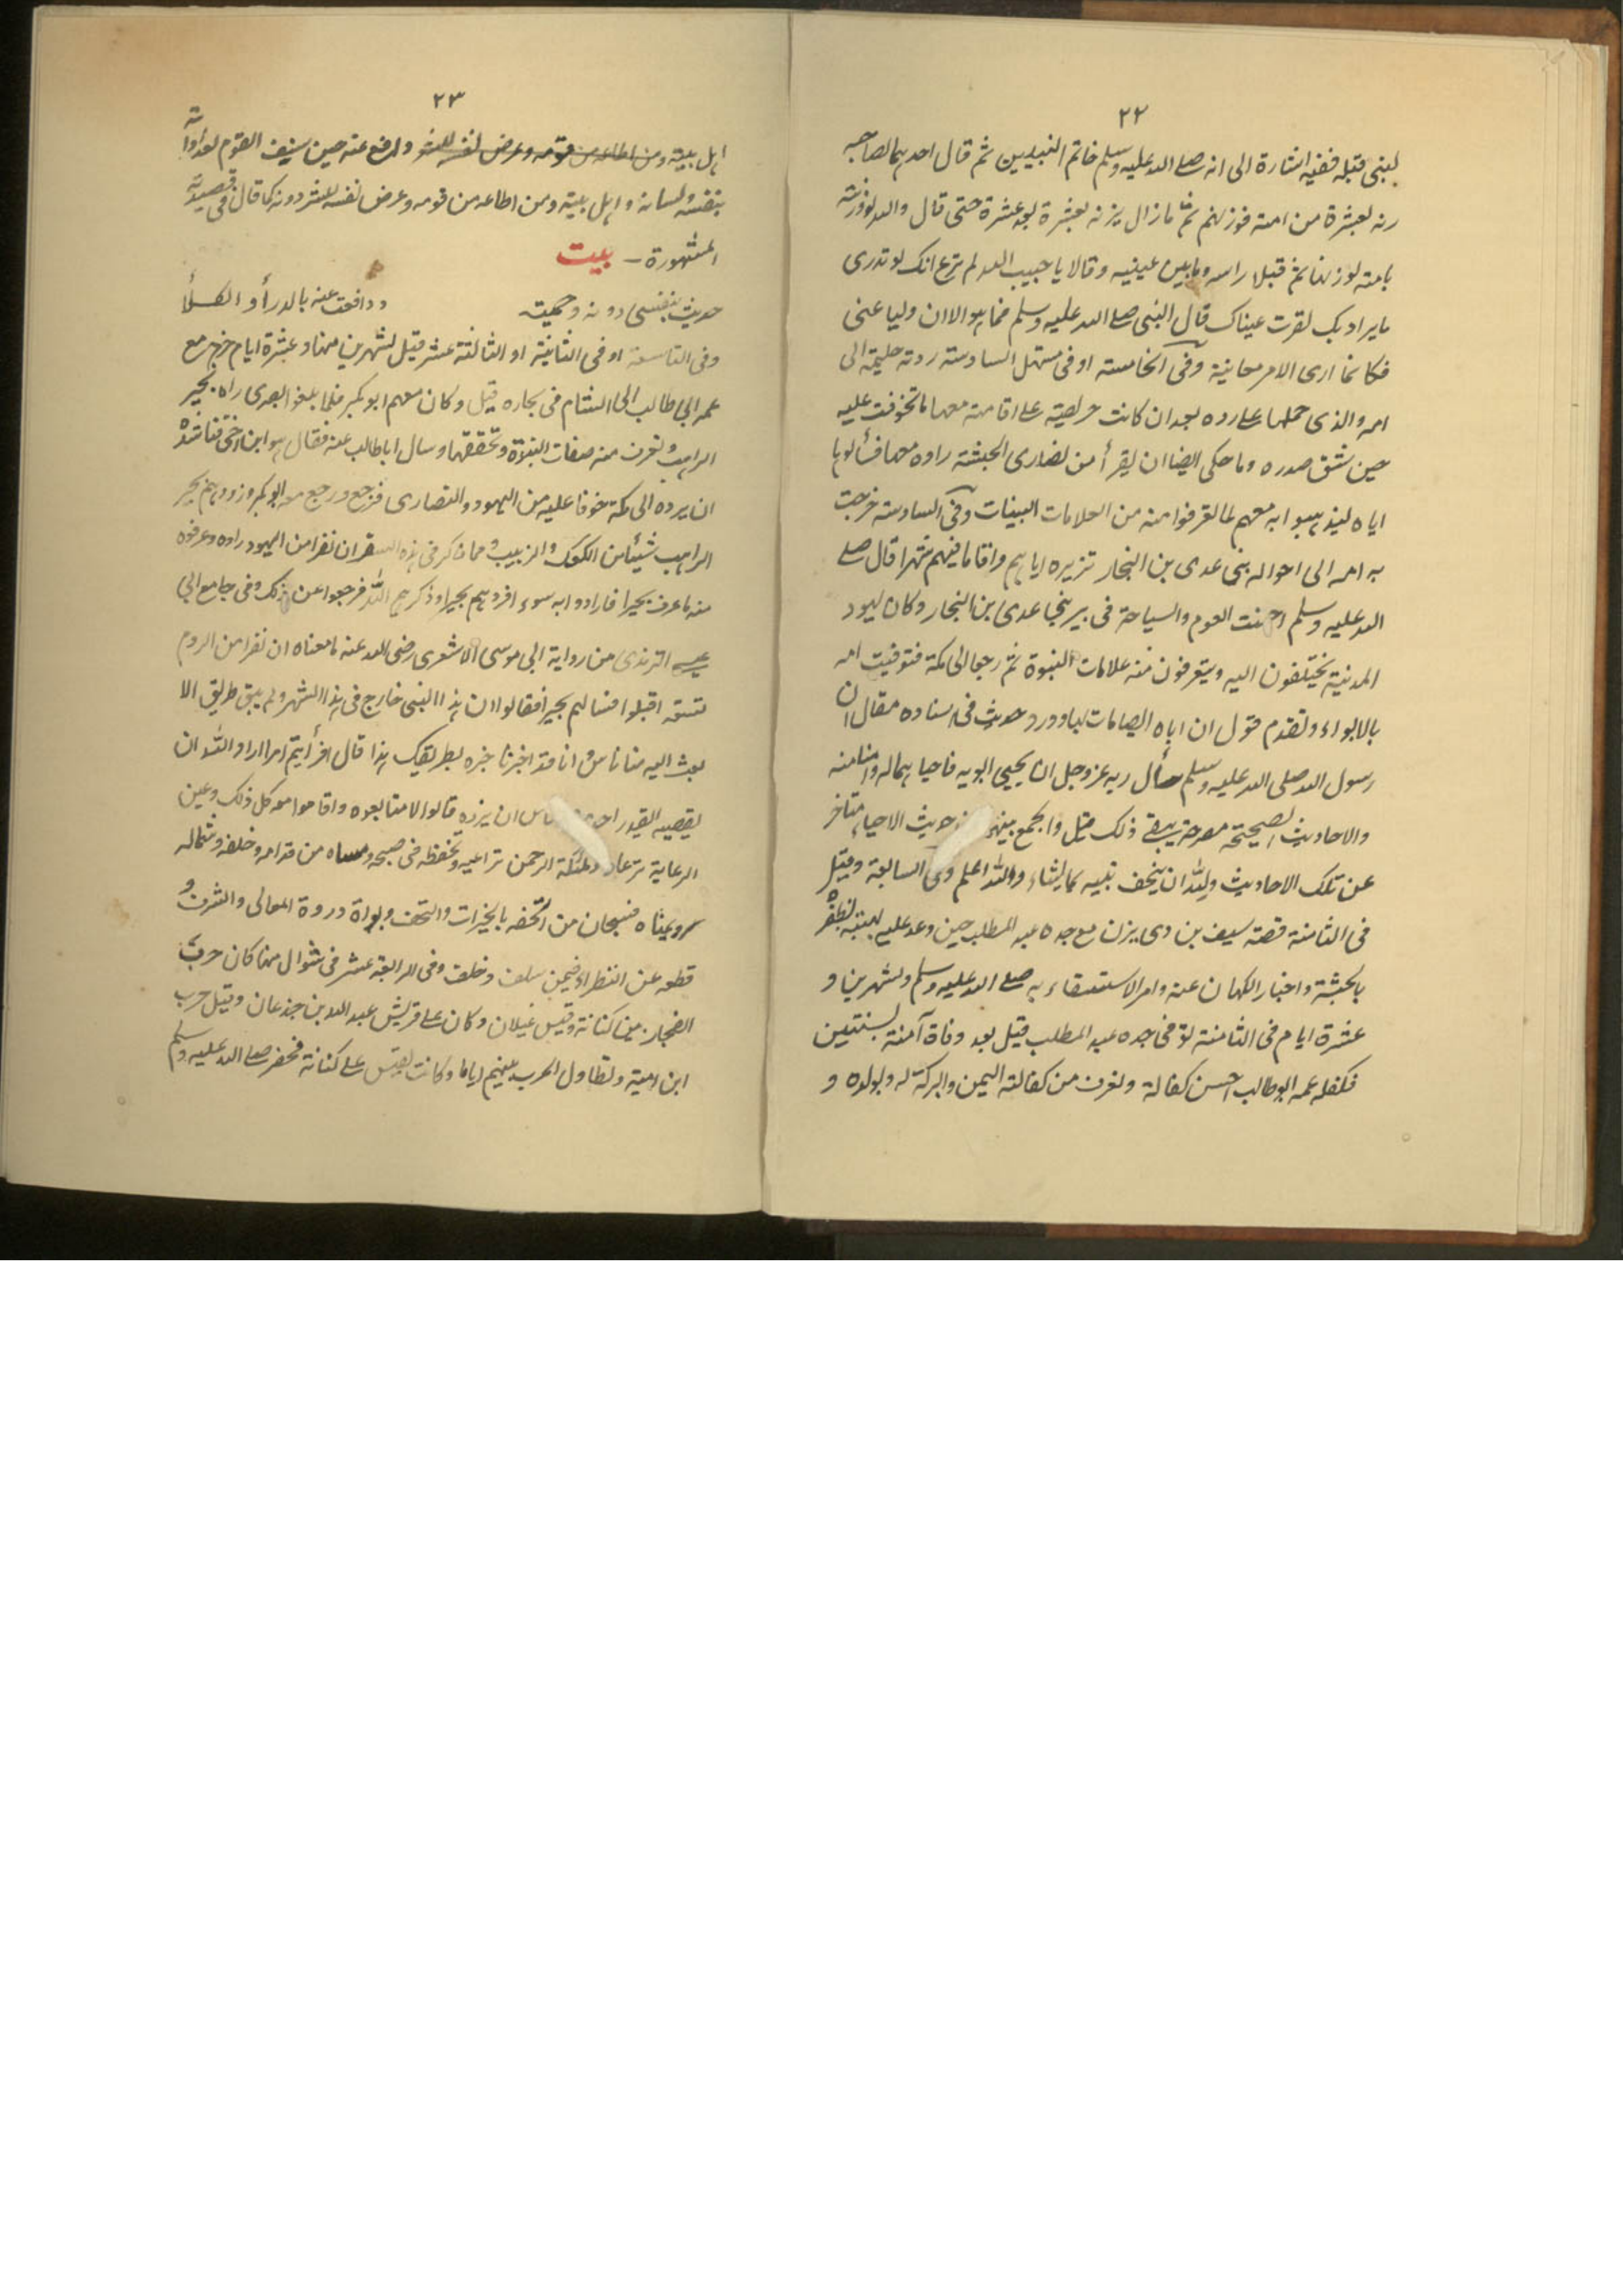 ٢٢
لنبی قبله ففیه اشارة الی انه صلے الله علیه وسلم خاتم النبیین ثم قال احدہما لصاحبه
زنه بعشرة من امته فوزنهم ثم ما زال یزنه بعشرة بعد عشرة حتی قال والله لو وزنته
بامته لوزنها ثم قبلا راسه وما بین عینیه وقالا یا حبیب الله لم ترع انک لو تدری
ما یراد بک لقرت عیناک قال النبی صلے الله علیه وسلم فما ہو الا ان ولیا عنی
فکانما اری الامر معاینة وفی الخامسة او فی مستهل السادسة ردته حلیمة الی
امه والذی حملها علے رده بعد ان کانت حریصة علے اقامته معها ما تخوفت علیه
حین شق صدره وما حکی ایضا ان نفرأ من نصاری الحبشة راوه معها فسألوها
ایاه لیذہبوا به معهم لما تعرفوا منه من العلامات البینات وفی السادسة خرجت
به امه الی اخواله بنی عدی بن النجار تزیره ایاہم واقاما فیهم شهرا قال صلے
الله علیه وسلم احسنت العوم والسیاحة فی بیر بنی عدی بن النجار وکان یهود
المدینة یختلفون الیه ویتعرفون منه علامات النبوة ثم رجعا الی مکة فتوفیت امه
بالابواء وتقدم قول ان اباه ایضا مات بها وورد حدیث فی اسناده مقال ان
رسول الله صلی الله علیه وسلم سأل ربه عز وجل ان یحیی ابویه فاحیاہما له وآمنا منه
والاحادیث الصحیحة مصرحة بنفے ذلک قیل والجمع بینهما حدیث الاحیاء متاخر
عن تلک الاحادیث ولله ان یتحف نبیه کما یشاء والله اعلم وفی السابعة وقیل
فی الثامنة قصة سیف بن ذی یزن مع جده عبد المطلب حین وفد علیه لیهنیه لظفره
بالحبشة واخبار الکهان عنه وامر الاستسقاء به صلے الله علیه وسلم ولشهرین و
عشرة ایام فی الثامنة توفی جده عبد المطلب قیل بعد وفاة آمنة بسنتین
فکفله عمه ابو طالب احسن کفالة وتعرف من کفالته الیمن والبرکة له ولولده و
٢٣
اہل بیته ومن اطاعه من قومه وعرض نفسه للشر ودافع عنه حین شنف القوم لعداوته
بنفسه ولسانه واہل بیته ومن اطاعه من قومه وعرض نفسه للشر دونه کما قال فی قصیدته
المشهورة – بیت
حدیث بنفسی دونه وحمیته ودافعت عنه بالدرأ والکلأ
وفی التاسعة او فی الثانیة او الثالثة عشر قیل لشهرین منها وعشرة ایام خرج مع
عمه ابی طالب الی الشام فی تجارة قیل وکان معهم ابو بکر فلما بلغوا بصری راه بحیر
الراہب وتعرف منه صفات النبوة وتحققها وسال ابا طالب عنه فقال ہو ابن اخی فناشده
ان یرده الی مکة خوفا علیه من الیهود والنصاری فرجع ورجع معه ابو بکر وزودہم بحیر
الراہب شیئا من الکعک والزبیب ومما ذکر فی ہذه السفر ان نفرا من الیهود راوه وعرفوه
منه ما عرف بحیرا فارادوا به سوء افردہم بحیرا وذکرہم الله فرجعوا عن ذلک وفی جامع ابی
عیسے الترمذی من روایة ابی موسی الاشعری رضی الله عنه ما معناه ان نفرا من الروم
تسعة اقبلوا فسالهم بحیرا فقالوا ان ہذا النبی خارج فی ہذا الشهر ولم یبق طریق الا
بعث الیه منا ناس وانا قد اخبرنا خبره بطریقک ہذا قال افرأیتم امرا اراد الله ان
یقضیه ایقدر احد من الناس ان یرده قالوا لا فتابعوه واقاموا معه کل ذلک وعین
الرعایة ترعاه وملئکة الرحمن تراعیه وتحفظه فی صبحه ومساه من قدامه وخلفه وشماله
ویمناه فسبحان من اتحفه بالخیرات والتحف وبواه ذروة المعالی والشرف و
قطعه عن النظراء فیمن سلف وخلف وفی الرابعة عشر فی شوال منها کان حرب
الفجار بین کنانة وقیس غیلان وکان علے قریش عبد الله بن جذعان وقیل حرب
ابن امیة وتطاول الحرب بینهم ایاما وکانت لقیس علے کنانة فحضر صلے الله علیه وسلم